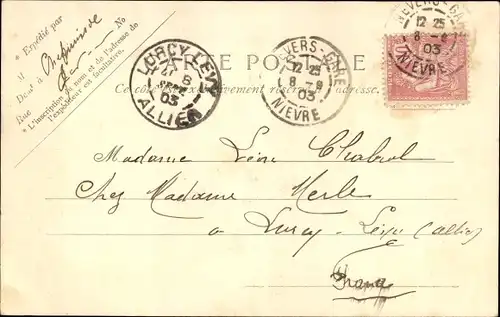 * Expédié par
M Chefnuisse
Demt à
Rue No
* L'inscription du nom et de l'adresse de
l'expéditeur est facultative.
CARTE POSTALE
Ce côté exclusivement réservé à l'adresse.
LURCY-LEVY
8
03
ALLIER
NEVERS-GARE
12 25
8 - 8
03
NIEVRE
NEVERS-GARE
12 25
8 - 8
03
NIEVRE
Madame Léon Chabrol
Chez Madame Merle
a Lurcy-Lévy (allier)
France